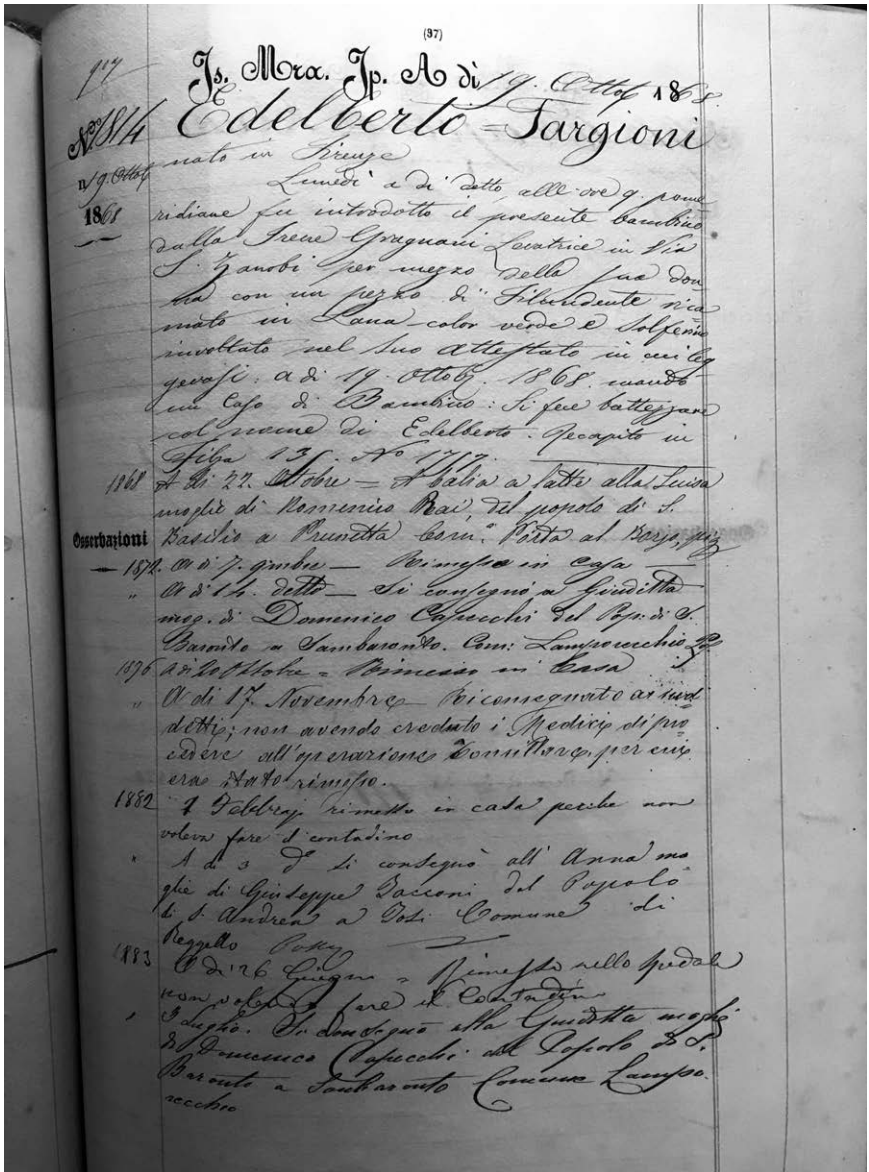 (97)
917
Js. Mra. Jp. A dì 19. Ottob 1868.
Nº 1814 Edelberto = Targioni
n 19. Ottob nato in Firenze
1868 Lunedì a dì detto, alle ore 9. pome
ridiane fu introdotto il presente bambino
dalla Irene Gragnani Levatrice in Via
S. Zanobi per mezzo della sua don
na con un pezzo di Filundente rica
mato in Lana color verde e Solferino
involtato nel suo attestato in cui leg
gevasi: a di 19. Ottob. 1868. mando
un Caso di Bambino: Si fece battezzare
col nome di Edelberto. Recapito in
Filza 13 Nº 1717.
1868 A di 22. Ottobre = A balia a latte alla Luisa
moglie di Domenico Bai, del popolo di S.
Osserbazioni Basilio a Prunetta Com: Porta al Borgo,
1872. a di 7. — Rimesso in casa —
" A di 14. detto — Si consegnò a Giuditta
mog. di Domenico Capecchi del Pop: di S.
Baronto a Sambaronto. Com: Lamporecchio
1876 a di 20 Ottobre = Rimesso in Casa
" A di 17. Novembre Riconsegnato ai sud
detti; non avendo creduto i Medici di pro
cedere all'operazione per cui
era stato rimesso.
1882 1 Febbraj rimesso in casa perche non
voleva fare il contadino
" A di 3 dº si consegnò all' Anna mo
glie di Giuseppe Bacconi del Popolo
di S. Andrea a Tosi Comune di
Reggello
1883 A di 26 Giugno = Rimesso nello spedale
non volendo fare il Contadino
" 3 Luglio. Si consegnò alla Giuditta moglie
di Domenico Capecchi del Popolo di S.
Baronto a Sanbaronto Comune Lampo.
recchio